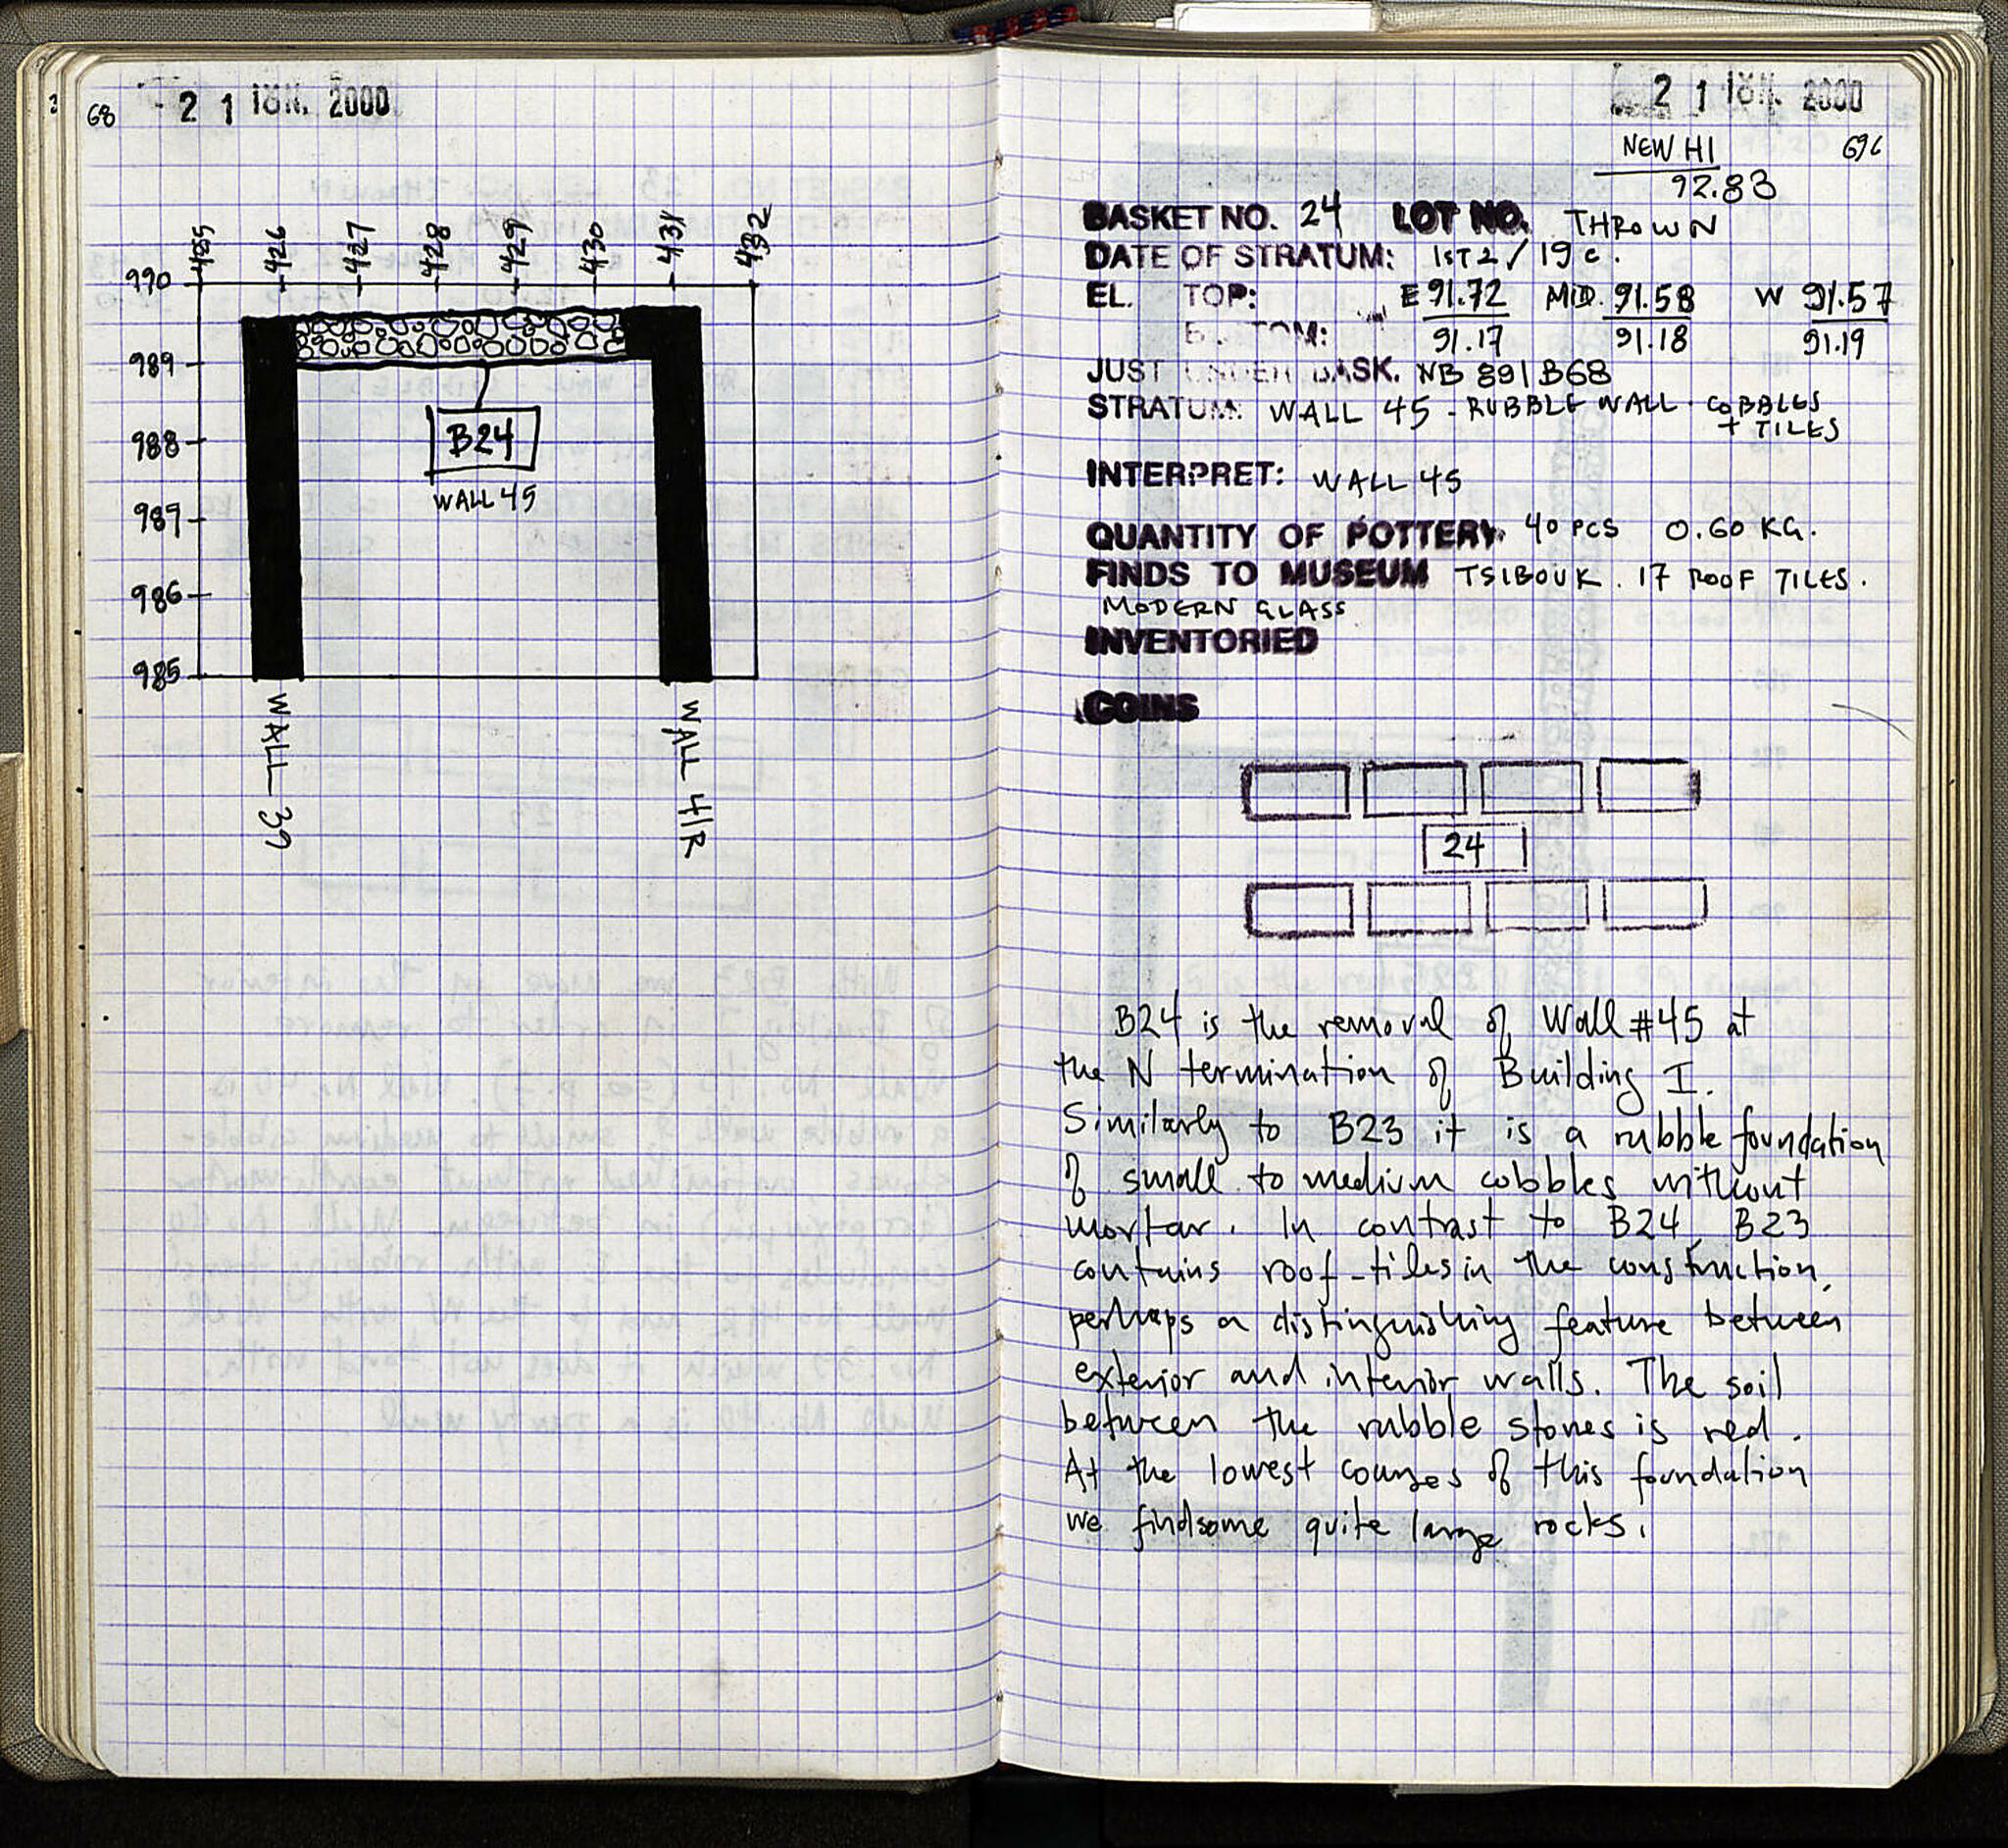 68
21 ΙΟΥΝ. 2000
425 426 427 428 429 430 431 432
990
989
988
987
986
985
B24
WALL 45
WALL 39
WALL 41R
21 ΙΟΥΝ. 2000
NEW HI
92.83
BASKET NO. 24 LOT NO. THROWN
DATE OF STRATUM: 1ST 2/19 c.
EL. TOP: E 91.72 MID. 91.58 W 91.57
BOTTOM: 91.17 91.18 91.19
JUST UNDER BASK. NB 891 B68
STRATUM: WALL 45 - RUBBLE WALL. COBBLES
+ TILES
INTERPRET: WALL 45
QUANTITY OF POTTERY. 40 PCS 0.60 KG.
FINDS TO MUSEUM TSIBOUK. 17 ROOF TILES.
MODERN GLASS
INVENTORIED
COINS
24
B24 is the removal of Wall #45 at
the N termination of Building I.
Similarly to B23 it is a rubble foundation
of small to medium cobbles without
mortar. In contrast to B24, B23
contains roof-tiles in the construction,
perhaps a distinguishing feature between
exterior and interior walls. The soil
between the rubble stones is red.
At the lowest courses of this foundation
we find some quite large rocks.